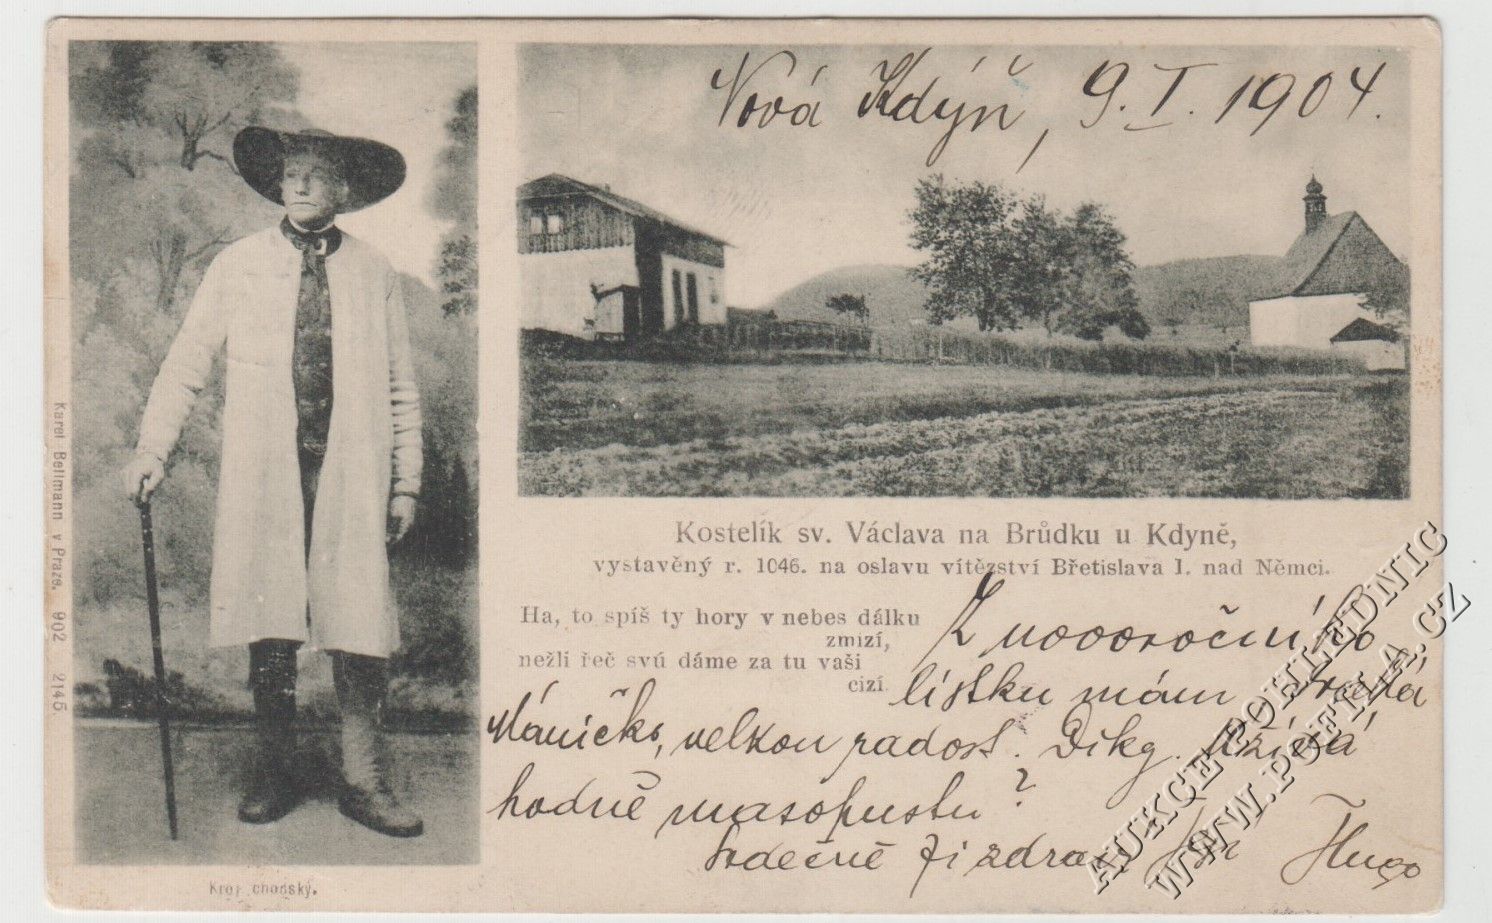 Nová Kdýň, 9. I. 1904.
Karel Bellmann v Praze. 902 2145.
Kostelík sv. Václava na Brůdku u Kdyně,
vystavěný r. 1046. na oslavu vítězství Břetislava I. nad Němci.
Ha, to spíš ty hory v nebes dálku
zmizí,
nežli řeč svú dáme za tu vaši
cizí.
Z novoročního
lístku mám drahá
Máničko, velkou radost. Díky. Užívá
hodně masopustu?
Srdečně Ji zdraví Hugo
Kroj chodský.
AUKCE POHLEDNIC
WWW.POFILA.CZ